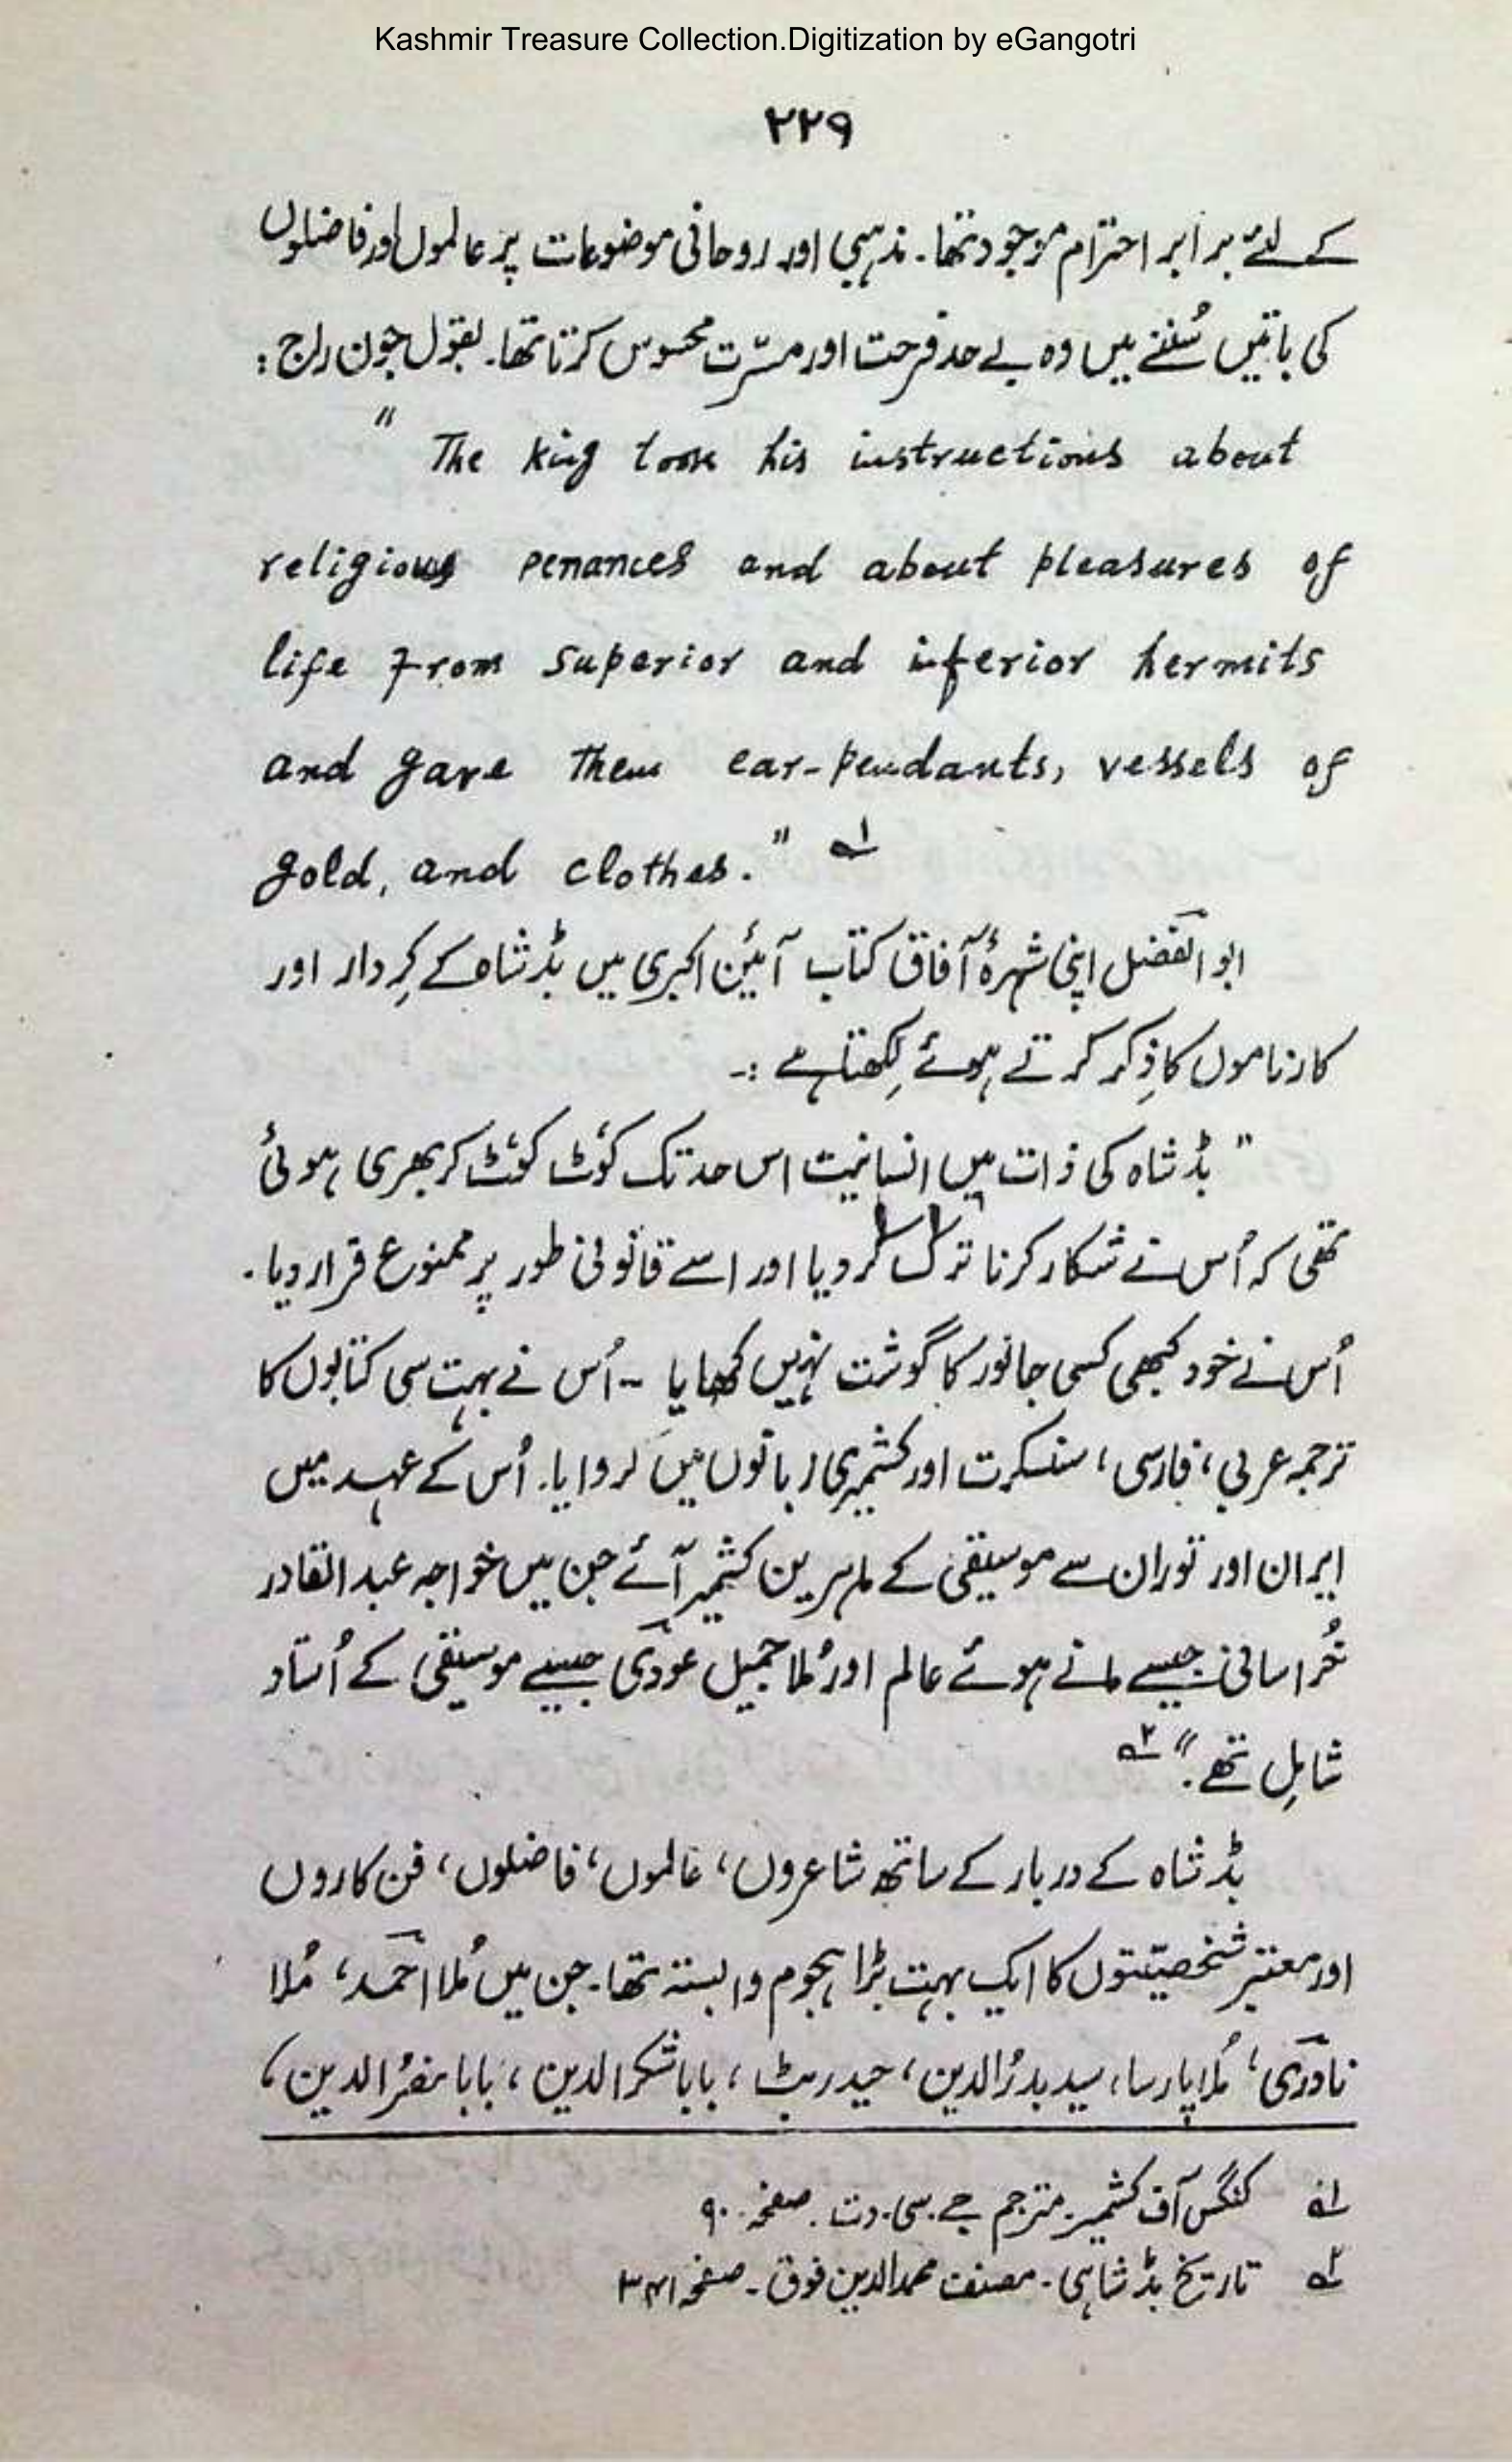 Kashmir Treasure Collection.Digitization by eGangotri
۲۲۹
کے لئے برابر احترام موجود تھا۔ مذہبی اور روحانی موضوعات پر عالموں اور فاضلوں
کی باتیں سُننے میں وہ بے حد فرحت اور مسرّت محسوس کرتا تھا۔ بقول جون راج :
" The king took his instructions about
religious penances and about pleasures of
life from superior and inferior hermits
and gave them ear-pendants, vessels of
gold, and clothes." ۱ ؎
ابوالفضل اپنی شہرۂ آفاق کتاب آئین اکبری میں بڈشاہ کے کِردار اور
کارناموں کا ذِکر کرتے ہوئے لِکھتا ہے :-
" بڈشاہ کی ذات میں انسانیت اس حد تک کوُٹ کوُٹ کر بھری ہوئی
تھی کہ اُس نے شکار کرنا ترک کر دیا اور اسے قانونی طور پر ممنوع قرار دیا۔
اُس نے خود کبھی کسی جانور کا گوشت نہیں کھایا ۔۔ اُس نے بہت سی کتابوں کا
ترجمہ عربی، فارسی، سنسکرت اور کشمیری زبانوں میں کروایا۔ اُس کے عہد میں
ایران اور توران سے موسیقی کے ماہرین کشمیر آئے جن میں خواجہ عبدالقادر
خُراسانی جیسے مانے ہوئے عالم اور مُلا جمیل عودی جیسے موسیقی کے اُستاد
شامِل تھے۔" ۲ ؎
بڈشاہ کے دربار کے ساتھ شاعروں، عالموں، فاضلوں، فن کاروں
اور معتبر شخصیّتوں کا ایک بہت بڑا ہجوم وابستہ تھا۔ جن میں مُلا احمد، مُلا
نادری، مُلا پارسا، سید بدرُالدین، حیدر بٹ، بابا شکرالدین، بابا الدین،
۱ ؎ کنگس آف کشمیر۔ مترجم جے۔ سی۔ دت۔ صفحہ ۹۰
۲ ؎ تاریخ بڈشاہی۔ مصنف محمدالدین فوق۔ صفحہ ۳۴۱